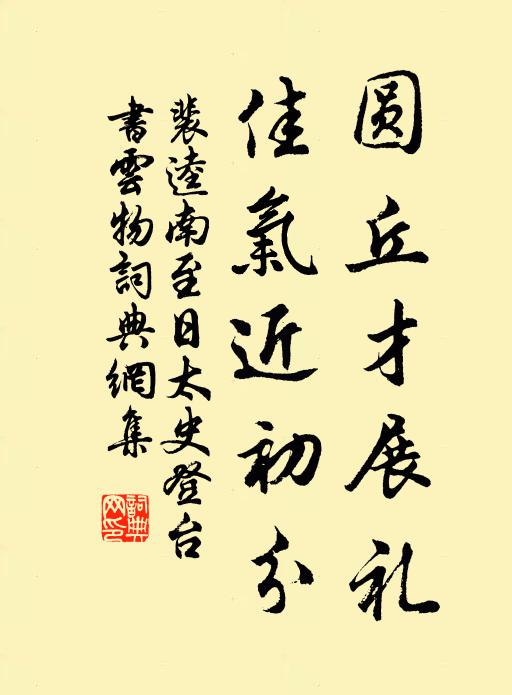 圆丘才展礼
佳氣近初分
裴逵南至日太史登台
書雲物詞典網集
詞典網印